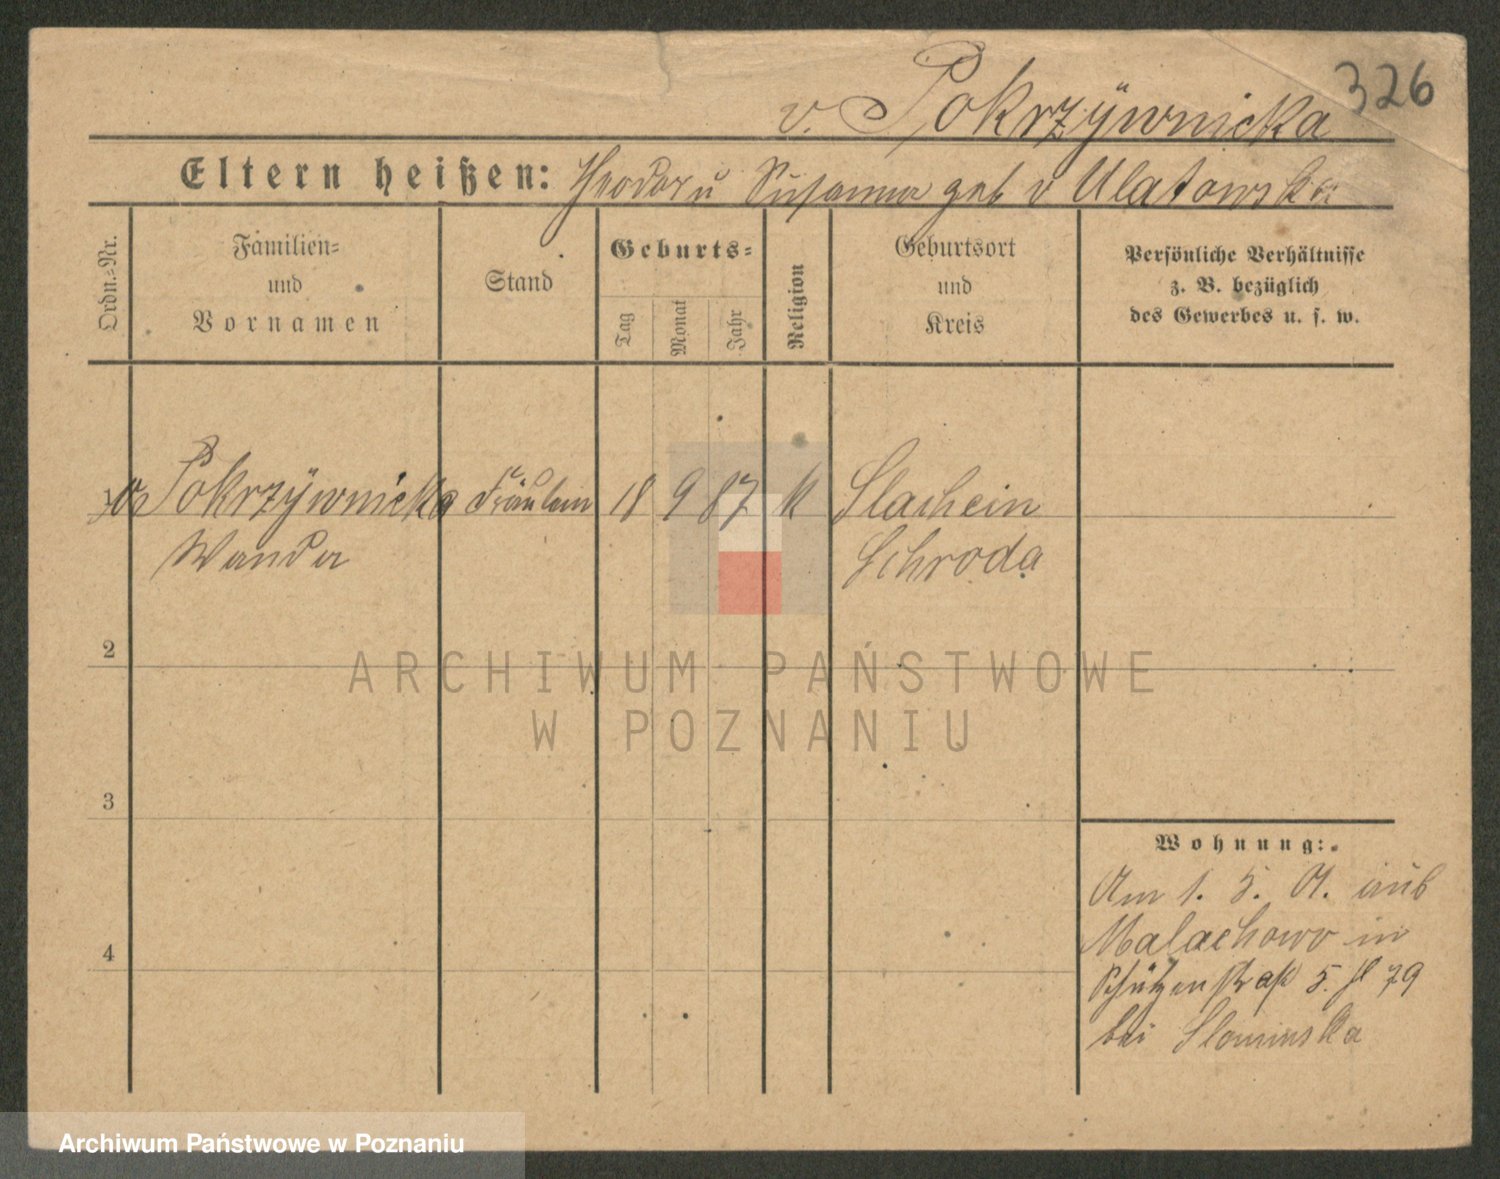 326
v. Pokrzÿwnicka
Eltern heißen: Theodor u Susanna geb v Ulatowska
Ordn.=Nr.
Familien=
und
Vornamen
Stand
Geburts=
Tag
Monat
Jahr
Religion
Geburtsort
und
Kreis
Persönliche Verhältnisse
z. B. bezüglich
des Gewerbes u. s. w.
1 v Pokrzÿwnicka Fräulein 18 9 87 k Slachcin
Wanda Schroda
2
ARCHIWUM PAŃSTWOWE
W POZNANIU
3
4
Wohnung:
Am 1. 5. 01. aus
Malachowo in
Schützenstraße 5. 79
bei Slominska
Archiwum Państwowe w Poznaniu